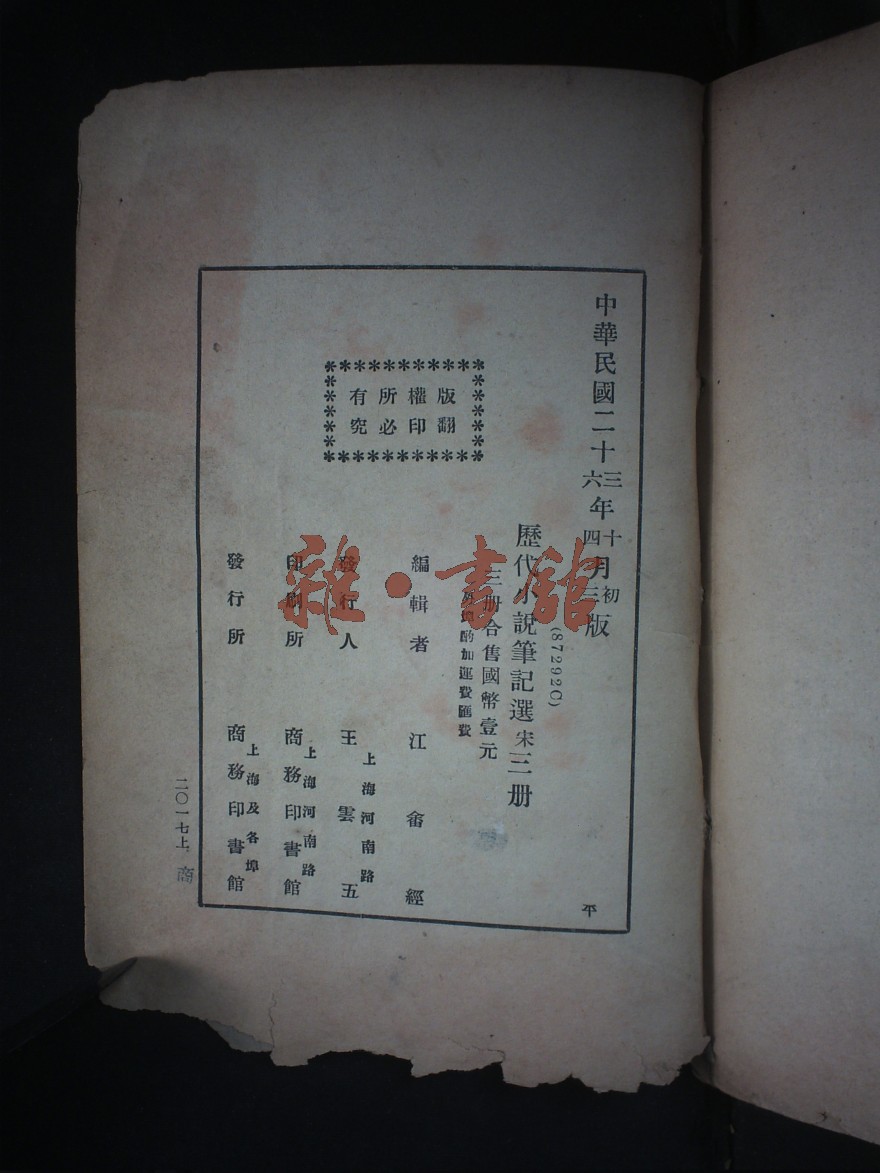 中華民國二十三年十月初版
六年四月三版
(87292C)
歷代小說筆記選宋三册
三册合售國幣壹元
外埠酌加運費匯費
版權所有
翻印必究
編輯者 江畬經
發行人 王雲五
上海河南路
印刷所 商務印書館
上海河南路
發行所 商務印書館
上海及各埠
平
二〇一七上
商
雜·書館